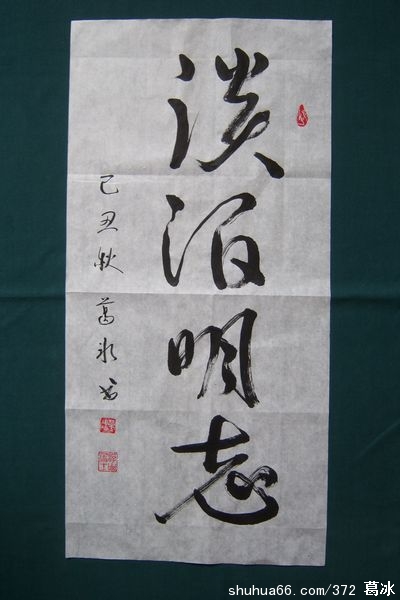 淡泊明志
己丑秋葛冰书
shuhua66.com/372 葛冰